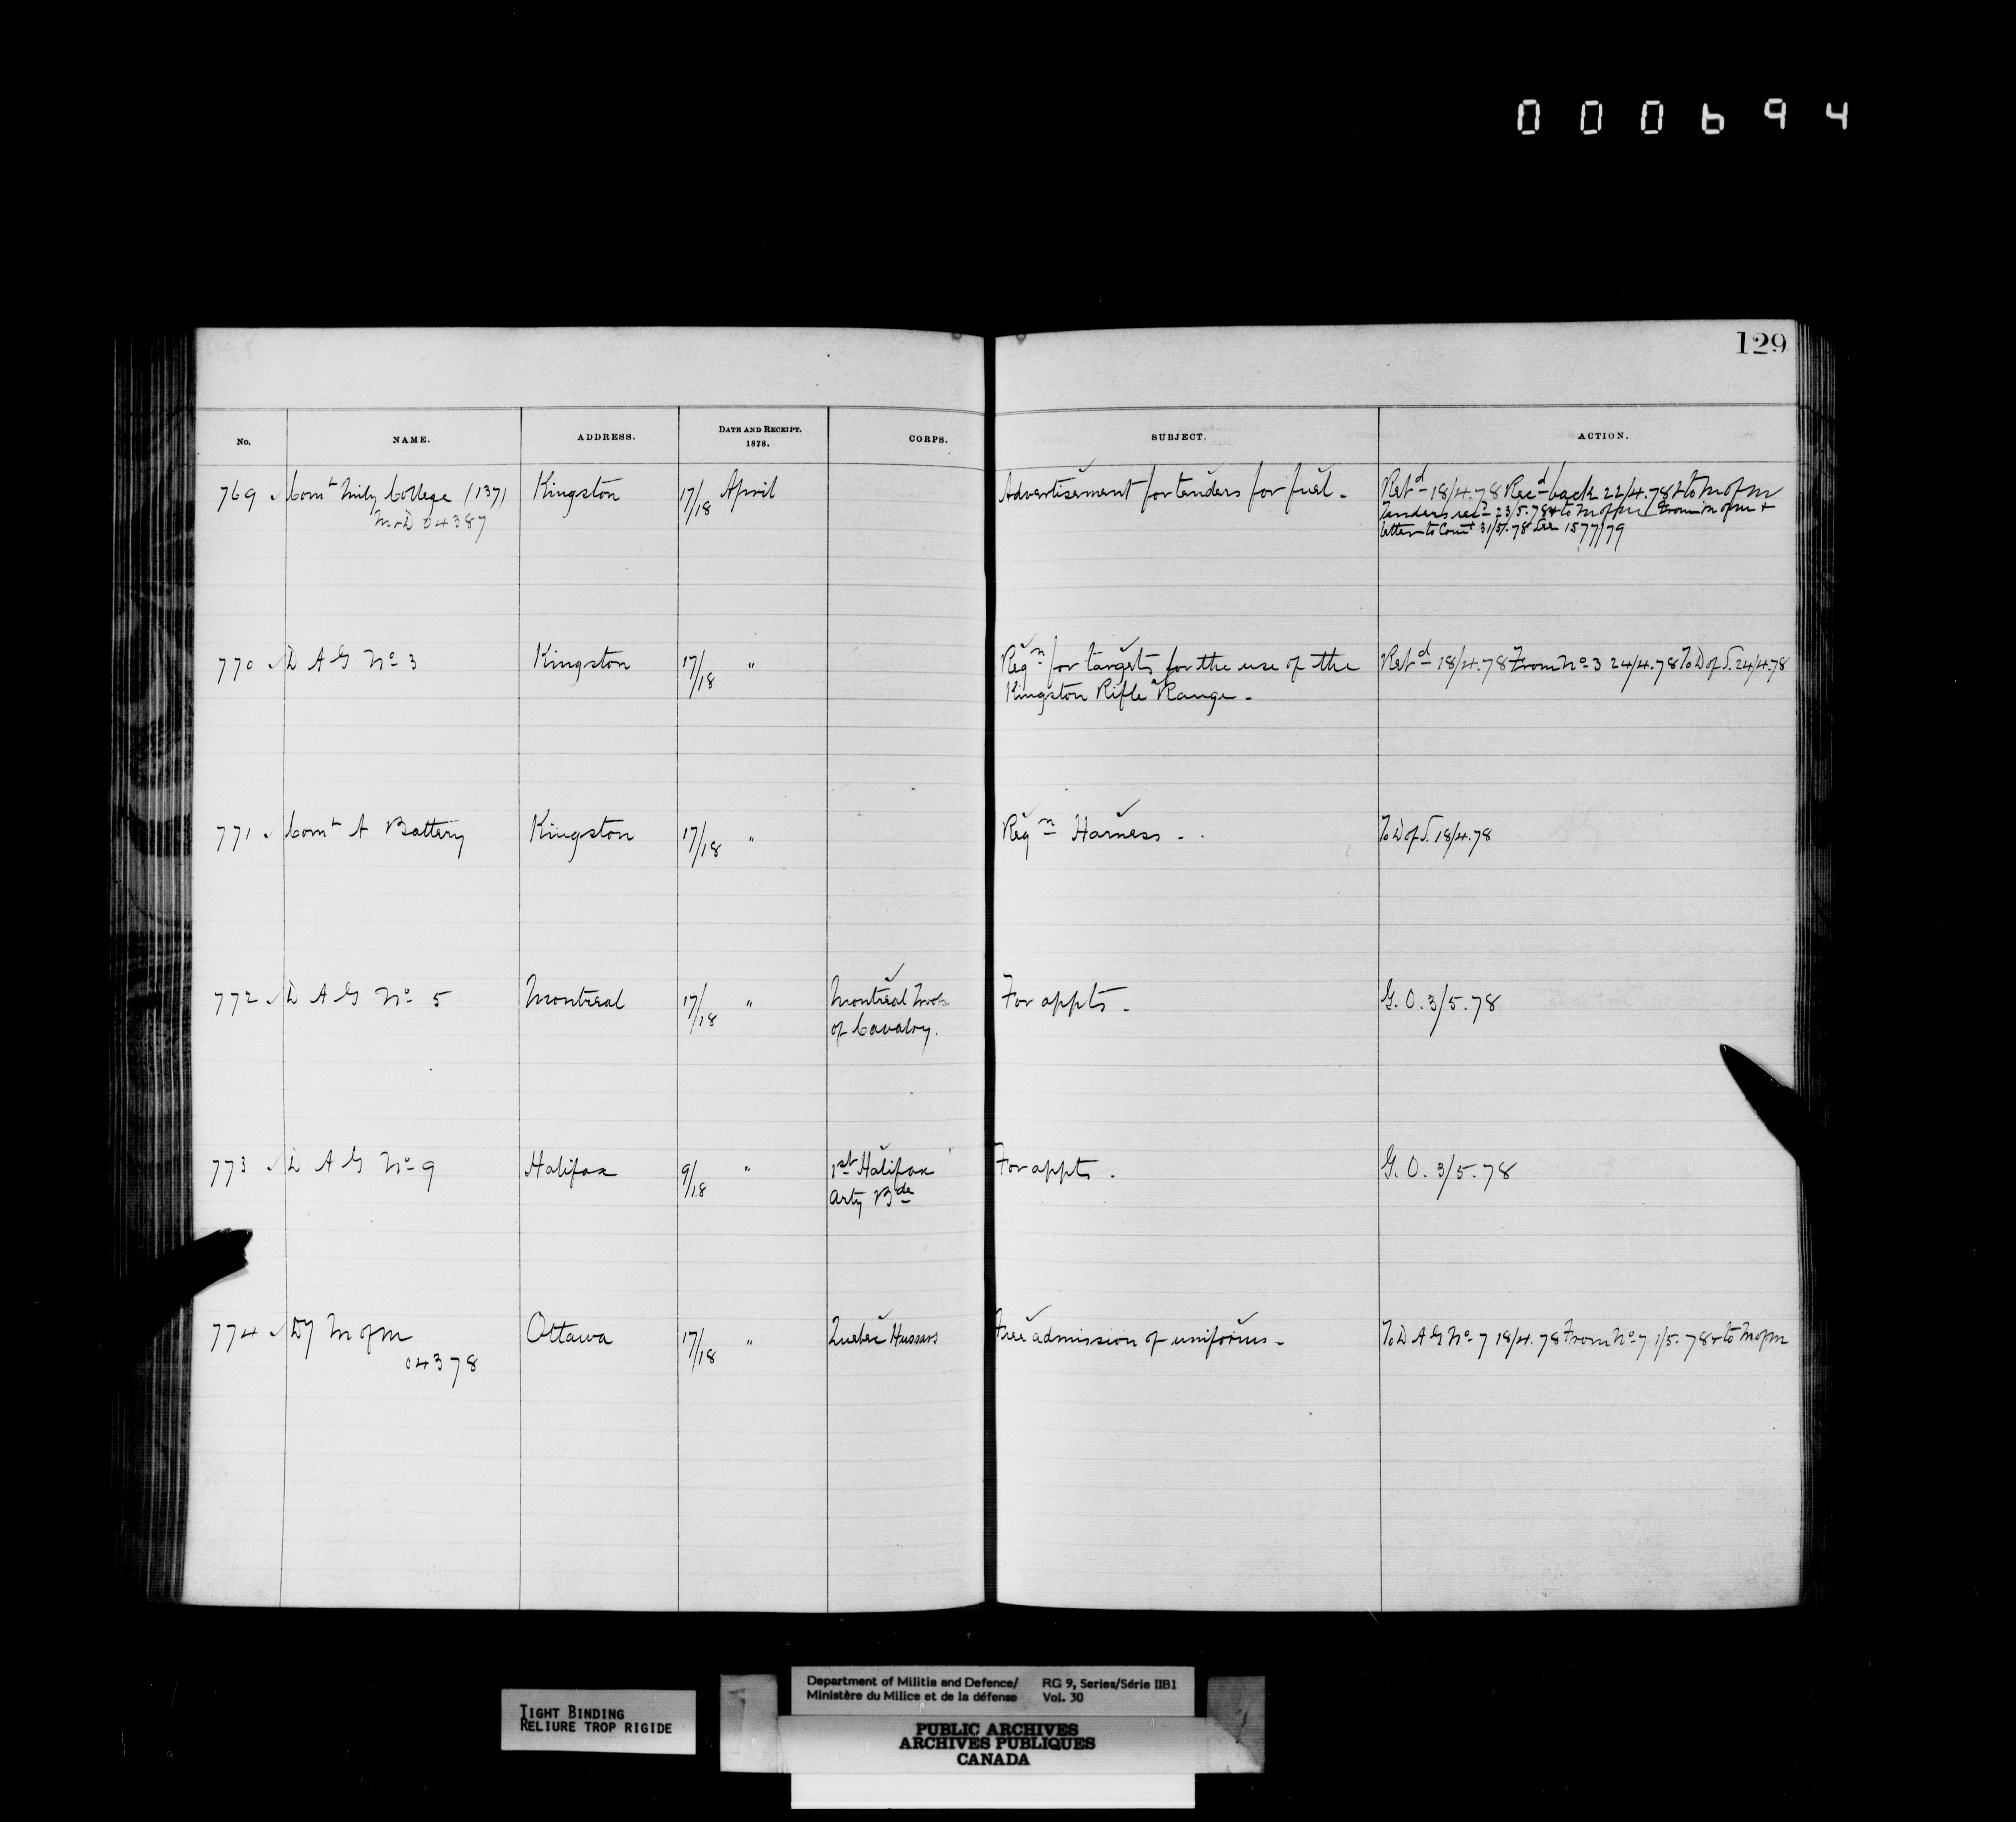 000694
129
No. NAME. ADDRESS. DATE AND RECEIPT. 1878. CORPS. SUBJECT. ACTION.
769 Comt Mily College /1371 Kingston 17/18 April Advertisement for tenders for fuel - Retd 18/4.78 Recd back 22/4.78 & to M of M
M & D 04387 Tenders recd 23/5.78 & to M of M From M of M &
letter to Comt 31/5.78 See 1577/79
770 D A G No 3 Kingston 17/18 " Reqn for targets for the use of the Retd 18/4.78 From No 3 24/4.78 To D of S. 24/4.78
Kingston Rifle Range -
771 Comt A Battery Kingston 17/18 " Reqn Harness - To D of S. 18/4.78
772 D A G No 5 Montreal 17/18 " Montreal Troop For appts - G. O. 3/5.78
of Cavalry.
773 D A G No 9 Halifax 9/18 " 1st Halifax For appts. G. O. 3/5.78
Arty Bde
774 Dy M of M Ottawa 17/18 " Quebec Hussars Free admission of uniforms - To D A G No 7 18/4.78 From No 7 1/5.78 & to M of M
04378
TIGHT BINDING
RELIURE TROP RIGIDE
Department of Militia and Defence/ RG 9, Series/Série IIB1
Ministère du Milice et de la défense Vol. 30
PUBLIC ARCHIVES
ARCHIVES PUBLIQUES
CANADA